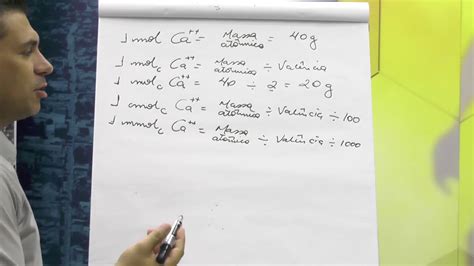 1 mol Ca++ = Massa atômica = 40 g
1 molc Ca++ = Massa atômica ÷ Valência
1 molc Ca++ = 40 ÷ 2 = 20 g
1 cmolc Ca++ = Massa atômica ÷ Valência ÷ 100
1 mmolc Ca++ = Massa atômica ÷ Valência ÷ 1000